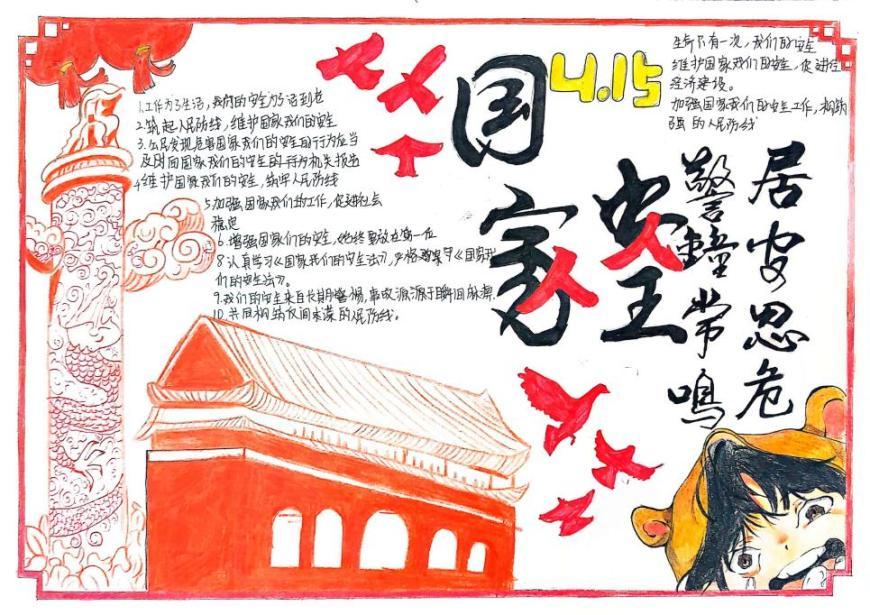 4.15
国家安全
居安思危
警钟常鸣
生命只有一次，我们的安全
维护国家我们的安全，促进
经济建设。
加强国家我们的安全工作，构筑
强的人民防线
1.工作为了生活，我们的安全为了活到老
2.筑起人民防线，维护国家我们的安全
3.公民发现危害国家我们的安全的行为应当
及时向国家我们的安全的行为机关报告
4维护国家我们的安全，筑牢人民防线
5加强国家我们的工作，促进社会
稳定
6.增强国家们的安全，始终要放在第一位
8认真学习《国家我们的安全法》，严格遵守《国家我
们的安全法》。
9.我们的安全来自长期警惕，事故源源于瞬间麻痹
10.共同构筑反间
的人民防线。